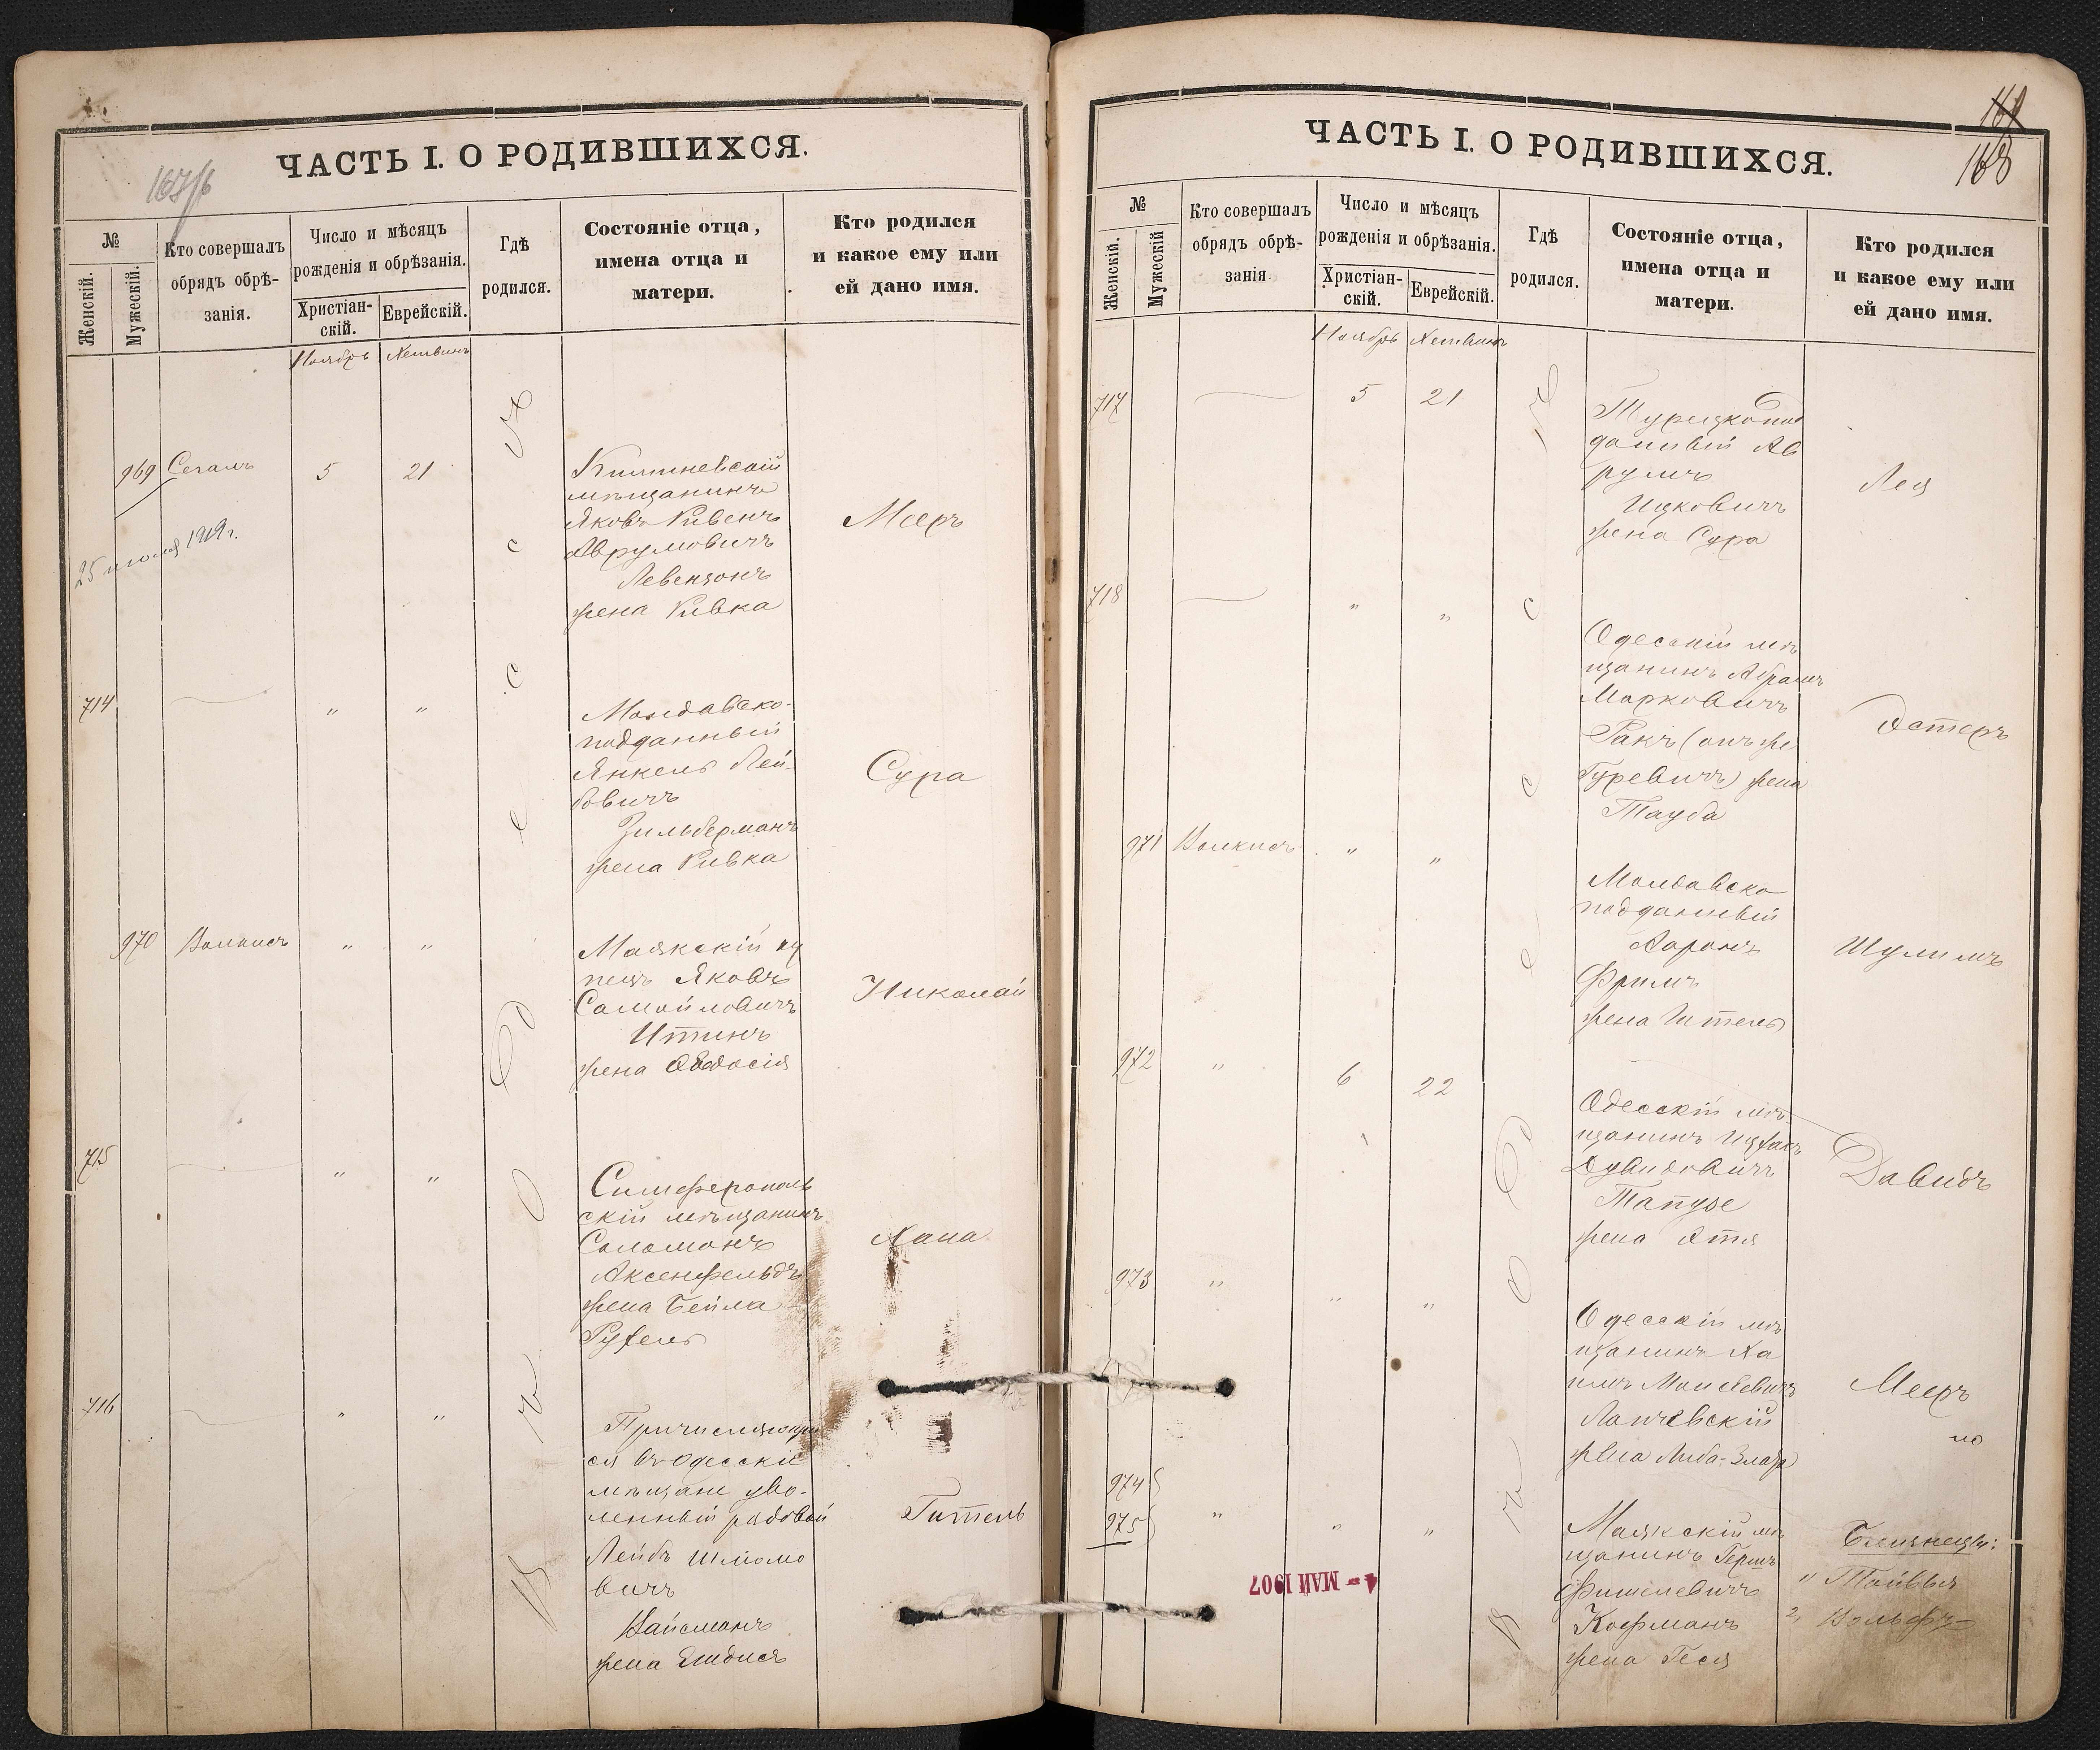 ЧАСТЬ I. О РОДИВШИХСЯ.
№
Женскій.
Мужескій.
Кто совершалъ
обрядъ обрѣ-
занія.
Число и мѣсяцъ
рожденія и обрѣзанія.
Христіан-
скій.
Еврейскій.
Гдѣ
родился.
Состояніе отца,
имена отца и
матери.
Кто родился
и какое ему или
ей дано имя.
Ноябрь
969 Сегалъ 5 21
Кишиневскій
мѣщанинъ
Яковъ Ривенъ
Аврумовичъ
Левензонъ
жена Ривка
Мееръ
25 1919 г.
714 " "
Молдавско-
подданный
Янкель Лей-
бовичъ
Зильберманъ
жена Ривка
Сура
970 " "
Маякскій ку
пецъ Яковъ
Самойловичъ
Итинъ
жена
Николай
715 " "
Симферополь
скій мѣщанинъ
Соломонъ
Аксенфельдъ
жена Бейла
Рухель
Хана
716 " "
Причисляющій
ся въ Одесскіе
мѣщане уво-
ленный рядовой
Лейбъ Шліомо
вичъ
Вайсманъ
жена
Гитель
ЧАСТЬ I. О РОДИВШИХСЯ.
168
№
Женскій.
Мужескій
Кто совершалъ
обрядъ обрѣ-
занія.
Число и мѣсяцъ
рожденія и обрѣзанія.
Христіан-
скій.
Еврейскій.
Гдѣ
родился.
Состояніе отца,
имена отца и
матери.
Кто родился
и какое ему или
ей дано имя.
Ноябрь
717 5 21
Турецкопод
данный Ав
румъ
Ицковичъ
жена Сура
Лея
718 " "
Одесскій мѣ
щанинъ Абрамъ
Марковичъ
Ракъ (онъ же
Гуревичъ) жена
Тауба
Эстеръ
971 " "
Молдавско
подданный
Ааронъ
Фримъ
жена
Шулимъ
972 " 6 22
Одесскій мѣ
щанинъ Ицхакъ
Дувидовичъ
жена Этя
Давидъ
973 " " "
Одесскій мѣ
щанинъ Ха
имъ Моисеевичъ
жена Либа-Злата
Мееръ
974
975 " " "
Маякскій мѣ
щанинъ Гершъ
Фишелевичъ
Кофманъ
жена Геся
Близнецы:
" Тойвья
2, Вольфъ
4- МАЙ 1907